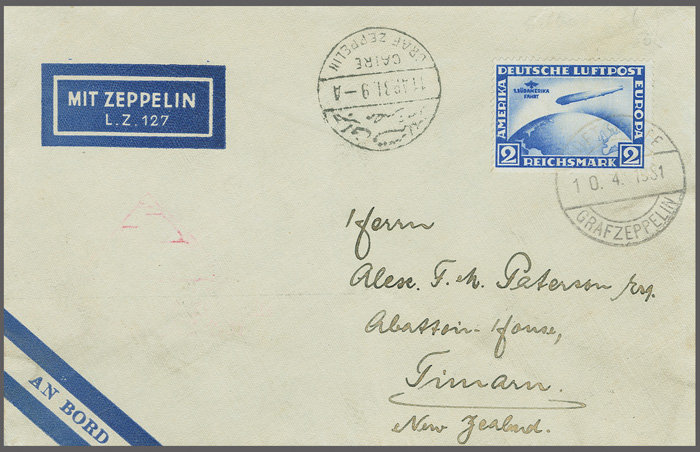 MIT ZEPPELIN
L.Z. 127
GRAF ZEPPELIN
CAIRE
11.IV.31.9-A
DEUTSCHE LUFTPOST
AMERIKA
EUROPA
1.SÜDAMERIKA
FAHRT
2 REICHSMARK 2
10.4.1931
GRAFZEPPELIN
Herrn
Alex. F. M. Paterson Esq.
Abattoir-House,
Timaru.
New Zealand.
AN BORD